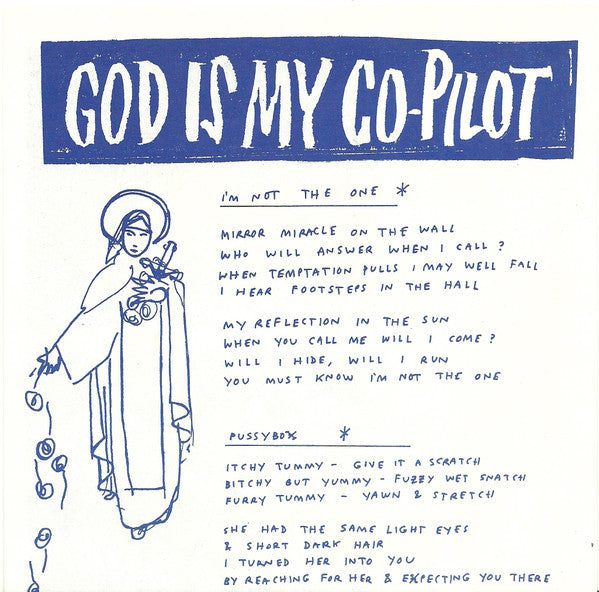 GOD IS MY CO-PILOT
I'M NOT THE ONE *
MIRROR MIRACLE ON THE WALL
WHO WILL ANSWER WHEN I CALL?
WHEN TEMPTATION PULLS I MAY WELL FALL
I HEAR FOOTSTEPS IN THE HALL
MY REFLECTION IN THE SUN
WHEN YOU CALL ME WILL I COME?
WILL I HIDE, WILL I RUN
YOU MUST KNOW I'M NOT THE ONE
PUSSYBOX *
ITCHY TUMMY - GIVE IT A SCRATCH
BITCHY BUT YUMMY - FUZZY WET SNATCH
FURRY TUMMY - YAWN & STRETCH
SHE HAD THE SAME LIGHT EYES
& SHORT DARK HAIR
I TURNED HER INTO YOU
BY REACHING FOR HER & EXPECTING YOU THERE